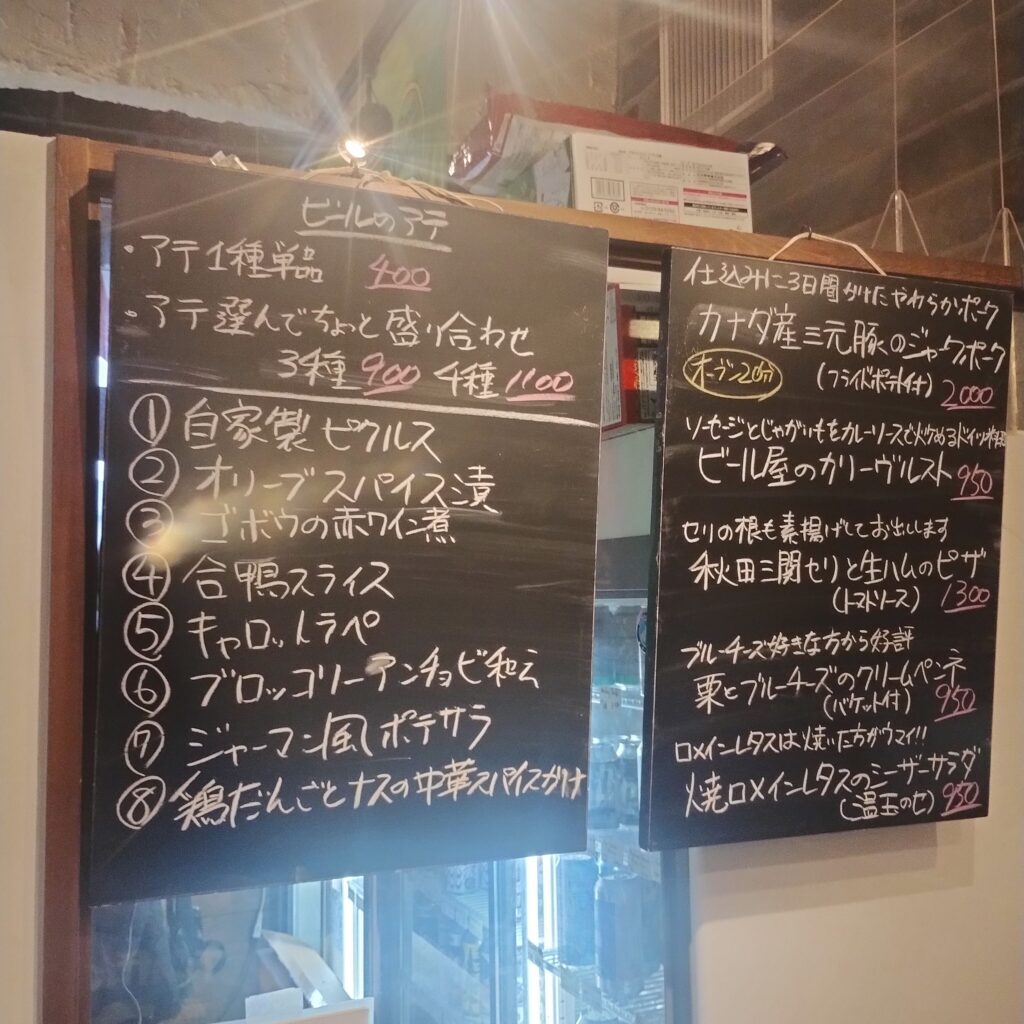 ビールのアテ
・アテ1種単品 400
・アテ選んでちょっと盛り合わせ
3種900 4種1100
① 自家製ピクルス
② オリーブスパイス漬
③ ゴボウの赤ワイン煮
④ 合鴨スライス
⑤ キャロットラペ
⑥ ブロッコリーアンチョビ和え
⑦ ジャーマン風ポテサラ
⑧ 鶏だんごとナスの中華スパイスがけ
仕込みに3日間かけたやわらかポーク
カナダ産三元豚のジャークポーク
オーブン20分
(フライドポテト付) 2000
ソーセージとじゃがいもをカレーソースで炒めるドイツ料理
ビール屋のカリーヴルスト 950
セリの根も素揚げしてお出しします
秋田三関セリと生ハムのピザ
(トマトソース) 1300
ブルーチーズ好きな方から好評
栗とブルーチーズのクリームペンネ
(バケット付) 950
ロメインレタスは焼いた方がウマイ!!
焼ロメインレタスのシーザーサラダ
(温玉のせ) 950